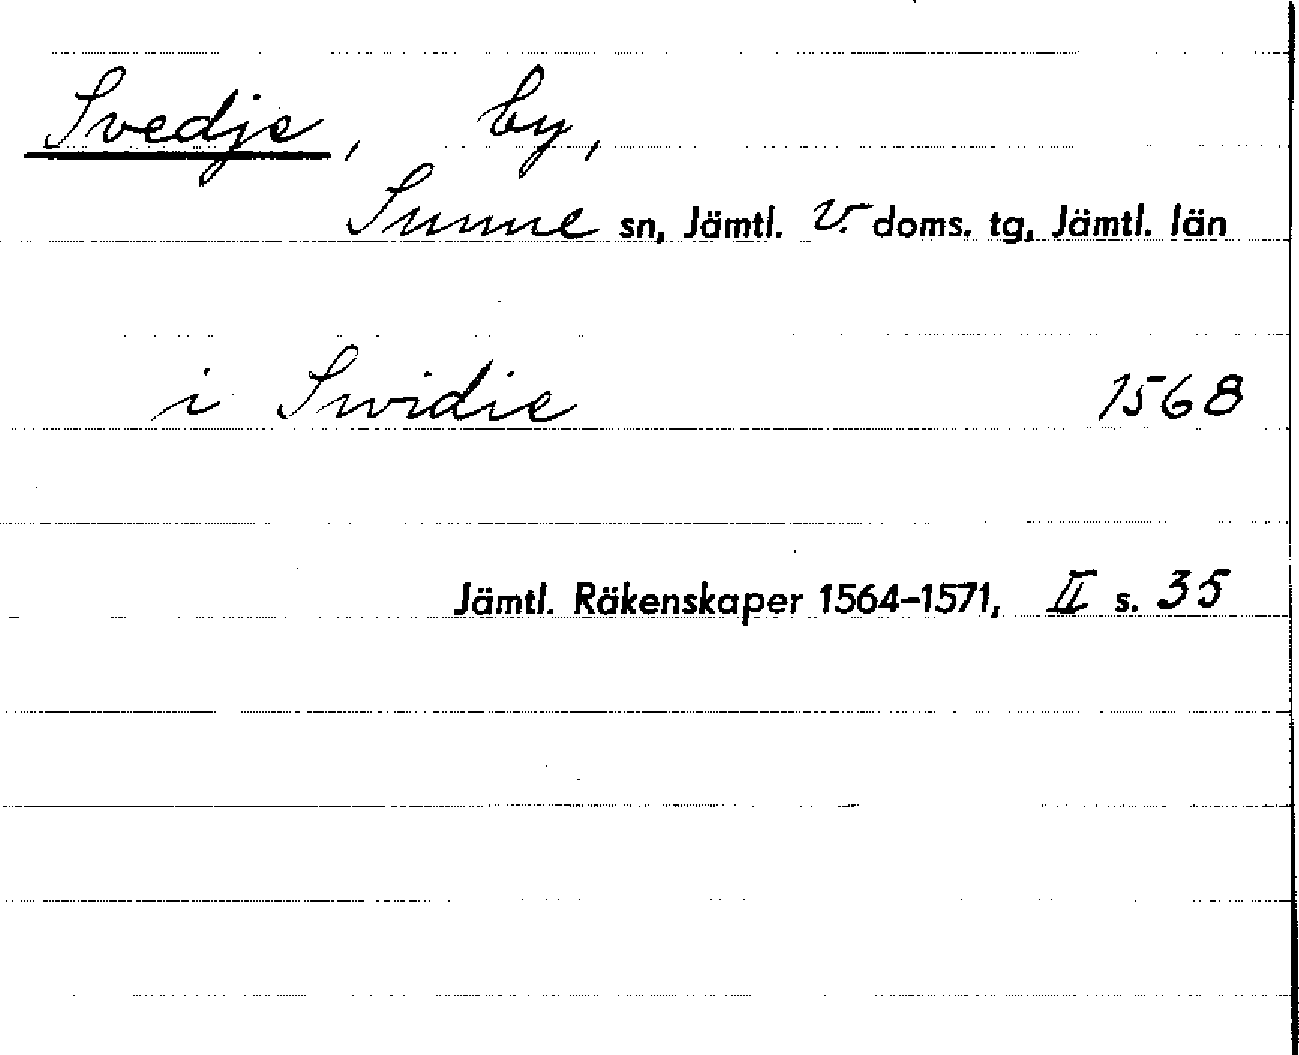 Svedje, by,
Sunne sn, Jämtl. V. doms. tg, Jämtl. län
i Swidie 1568
Jämtl. Räkenskaper 1564-1571, II s. 35